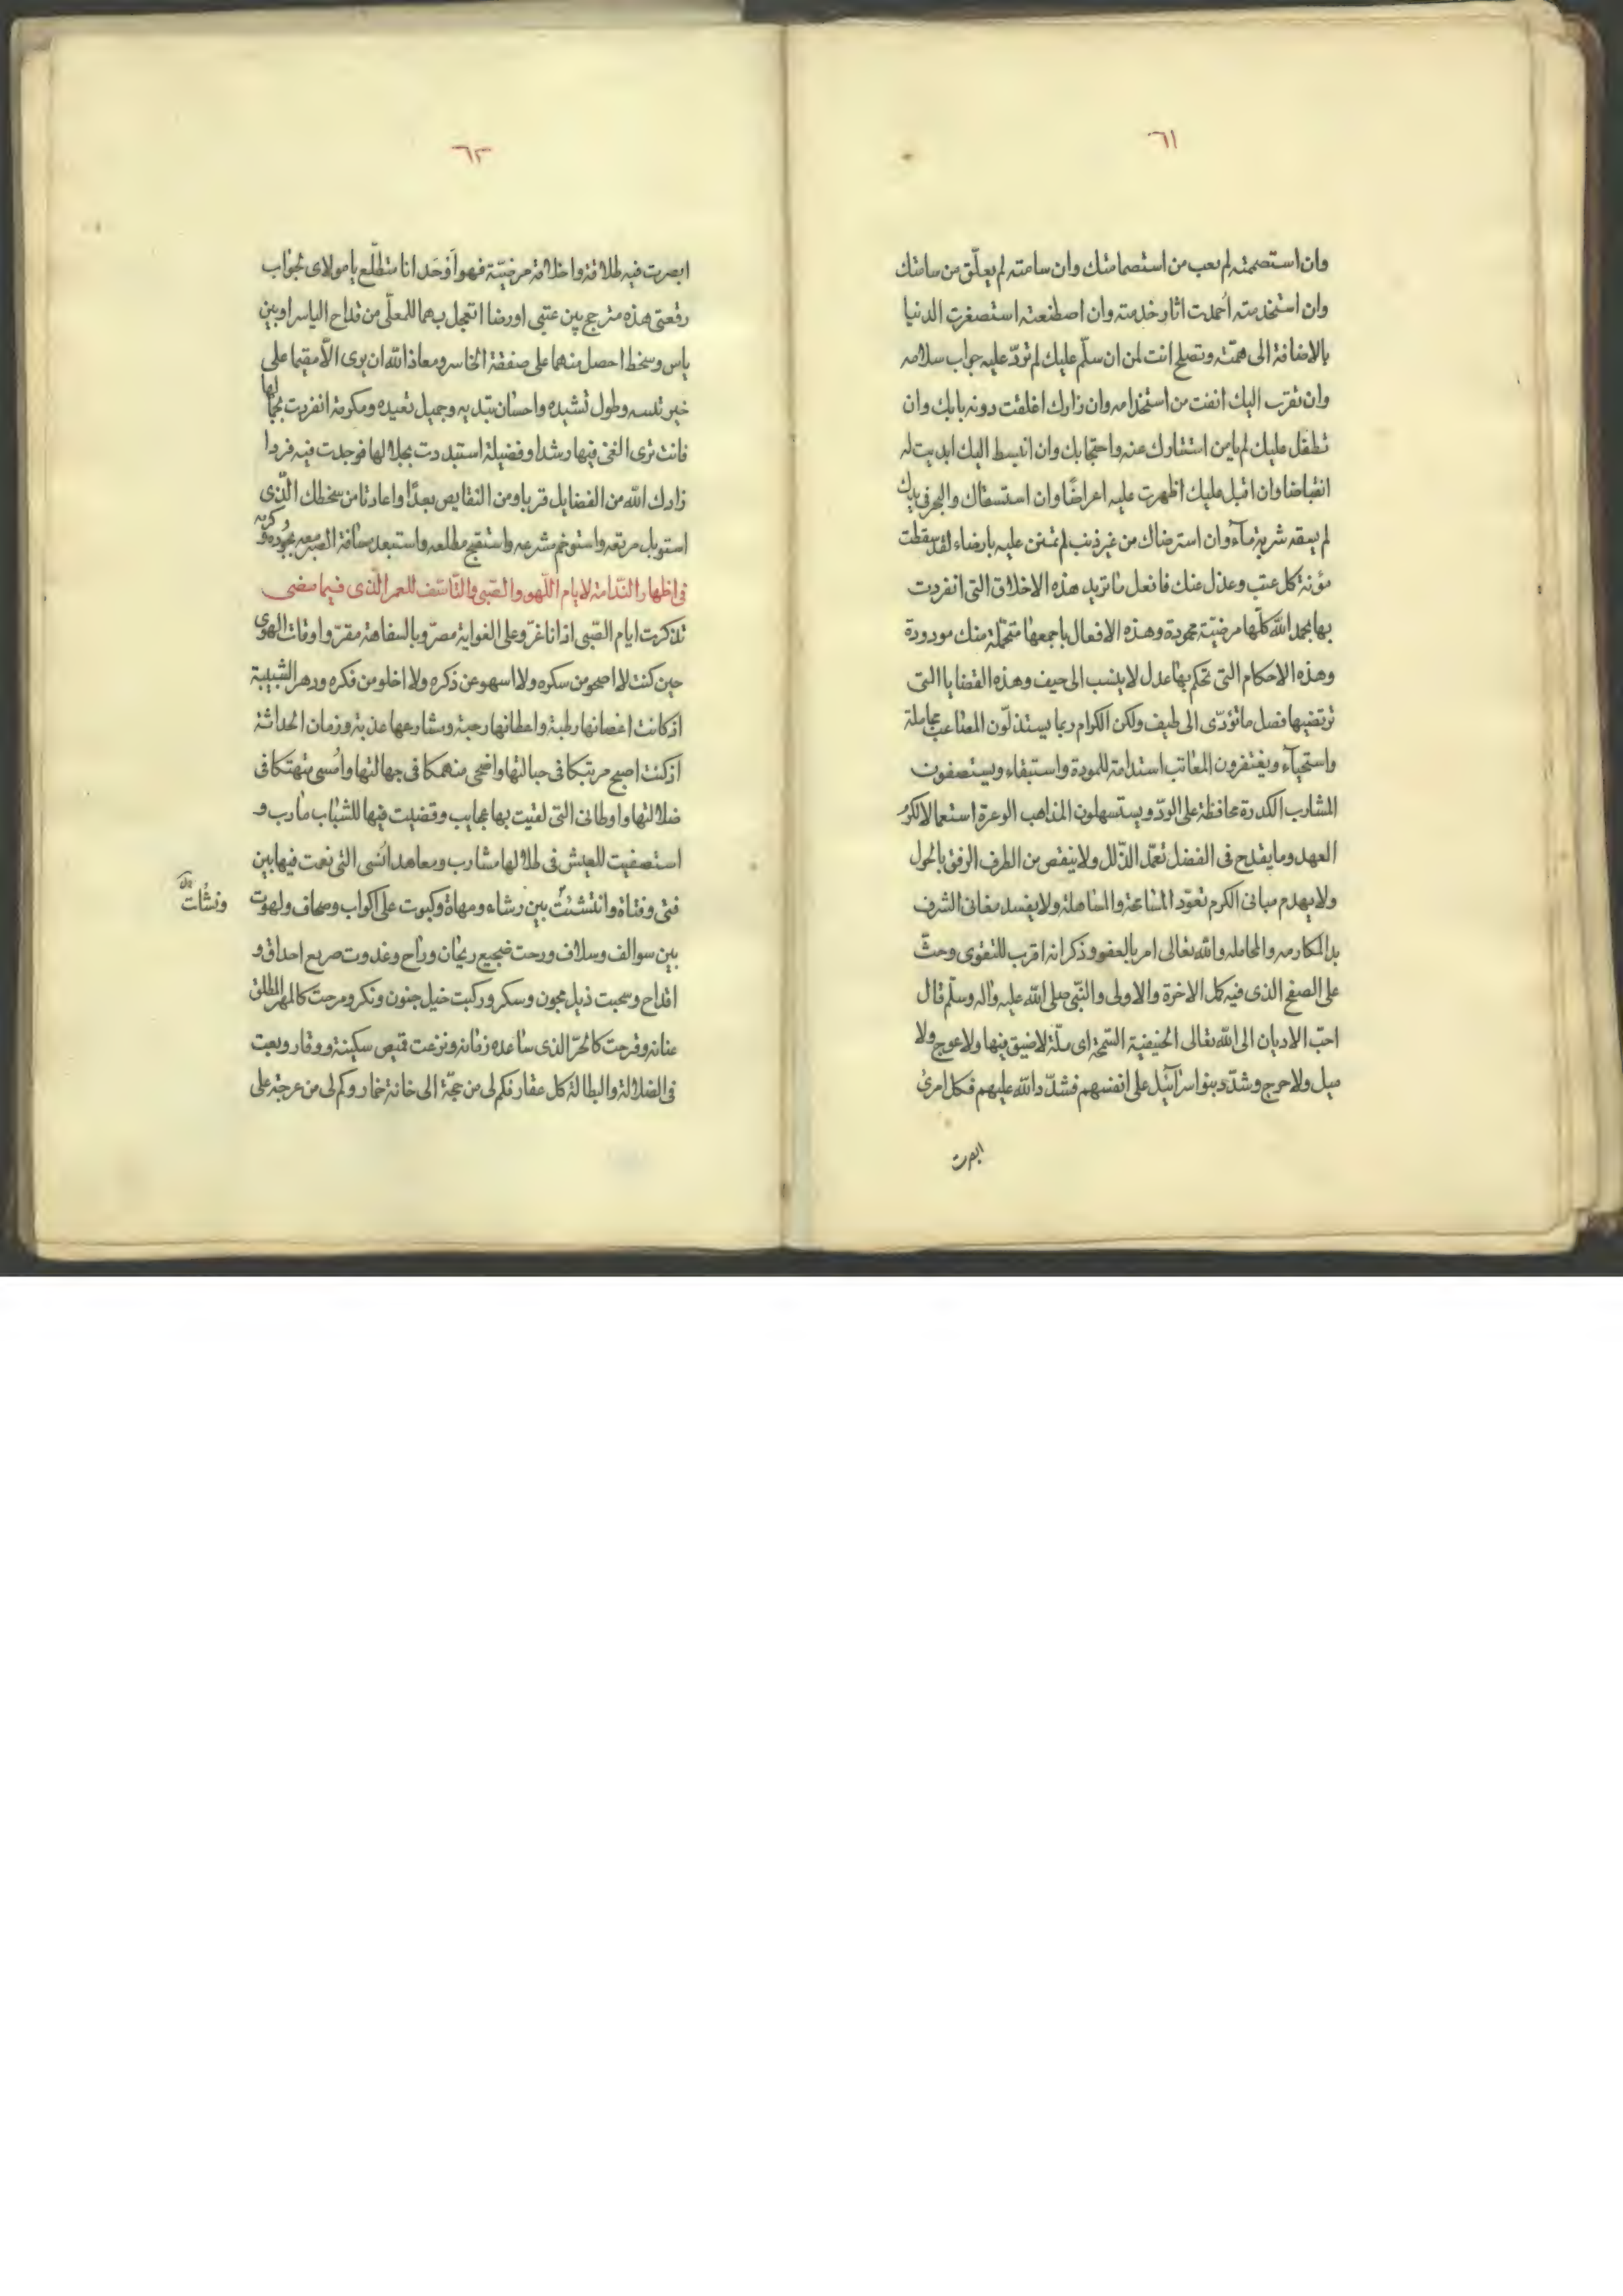 ٦١
وان استصحبته لم يعب من استصحابتك وان سامته لم يعلق من سامتك
وان استخدمته احمدت اثار خدمته وان اصطنعته استصغرت الدنيا
بالاضافة الى همّته وتصلح انت لمن ان سلّم عليك لم تردّ عليه جواب سلامه
وان تقرّب اليك انفت من استخدامه وان زارك اغلقت دونه بابك وان
تطفّل عليك لم يامن استتارك عنه واحتجابك وان انبسط اليك ابديت له
انقباضا وان اقبل عليك اظهرت عليه اعراضًا وان استسقاك والبحر فى يدك
لم يسقه شربة مآء وان استرضاك من غير ذنب لم تمنن عليه بارضاء لقد سقطت
مؤنة كل عتب وعذل عنك فافعل ما تريد هذه الاخلاق التى انفردت
بها بحمد الله كلّها مرضيّة محمودة وهذه الافعال باجمعها متحمّلة منك مودودة
وهذه الاحكام التى تحكم بها عدل لا ينسب الى حيف وهذه القضايا التى
ترتضيها فصل ما تؤدّى الى طيف ولكن الكرام ربما يستذلّون المتاعب مجاملة
واستحيآء ويغتفرون المعاتب استدامة للمودة واستبقاء ويستصفون
المشارب الكدرة محافظة على الودّ ويستسهلون المذاهب الوعرة استعمالا لكرم
العهد وما يقدح فى الفضل تعمّد الذلل ولا ينقص من الطرف الرفق بالحول
ولا يهدم مبانى الكرم تعوّد المسامحة والمساهلة ولا يفسد مغانى الشرف
بدا المكارمه والمجامله والله تعالى امر بالعفو وذكر انه اقرب للتقوى وحثّ
على الصفح الذى فيه كل الاخرة والاولى والنّبى صلى الله عليه واله وسلّم قال
احبّ الاديان الى الله تعالى الحنيفية السّمحة اى ملّة لا ضيق فيها ولا عوج ولا
ميل ولا حرج وشدّد بنو اسرآئيل على انفسهم فشدّد الله عليهم فكل امرئ
ابصرت
٦٢
ابصرت فيه طلاقة واخلاقة مرضيّة فهو اوحد انا متطلّع يا مولاى لجواب
رقعتى هذه مترجح بين عتبى او رضا اتعجل بهما للمعلّى من قداح الياسر او بين
ياس وسخط احصل منهما على صفقة الخاسر ومعاذ الله ان يرى الّا مقيما على
خير تلبسه وطول تشيده واحسان تبديه وجميل تعيده ومكرمة انفردت بجمالها
فانت ترى الغى فيها رشدا وفضيلة استبددت بجلالها فوجدت فيه فردا
زادك الله من الفضايل قربا ومن النقايص بعدًا واعاذنا من سخطك الّذى
استوبل مرتعه واستوخم مشرعه واستقبح مطلعه واستبعد مسافة الصبر معه بجوده وكرمه
فى اظهار النّدامة لايام اللّهو والصّبى والتّاسّف للعمر الّذى فيما مضى
تذكرت ايام الصّبى اذ انا غرّ وعلى الغواية مصرّ وبالسفاهة مقرّ واوقات الهوى
حين كنت لا اصحو من سكره ولا اسهو عن ذكره ولا اخلو من فكره ودهر الشبيبة
اذ كانت اغصانها رطبة واعطانها رحبة ومشارعها عذبة وزمان الحداثة
اذ كنت اصبح مرتبكا فى حبالتها واضحى منهمكا فى جهالتها وامسى متهتكا فى
ضلالتها واوطانى التى لقيت بها عجايب وقضيت فيها للشباب مآرب و
استصفيت للعيش فى ظلالها مشارب ومعاهد انسى التى نعمت فيها بين
فتى وفتاة وانتشئت بين رشاء ومهاة وكبوت على اكواب وصحاف ولهوت
ونشأت
بين سوالف وسلاف ورحت ضجيع ريحان وراح وغدوت صريع احداق و
اقداح وسحبت ذيل مجون وسكر وركبت خيل جنون ونكر ومرحت كالمهر المطلق
عنانه وفرحت كالحرّ الذى ساعده زمانه ونزعت قميص سكينة ووقار وبعت
فى الضلالة والبطالة كل عقار فكم لى من حجّة الى خانة خمار وكم لى من عرجة على